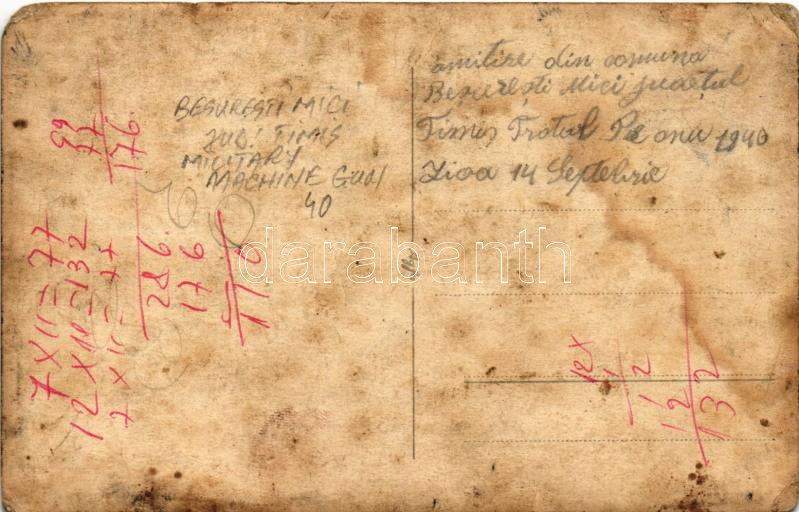 BESUREȘTI MICI
JUD. TIMIS
MILITARY
MACHINE GUN
40
amitire din comuna
Beșurești Mici judetul
Timiș Trotul Pe anu 1940
Zioa 14 Septebrie
99
77
176
7 X 11 = 77
12 X 11 = 132
7 X 11 = 77
286
176
110
12 X
12
12
132
darabanth